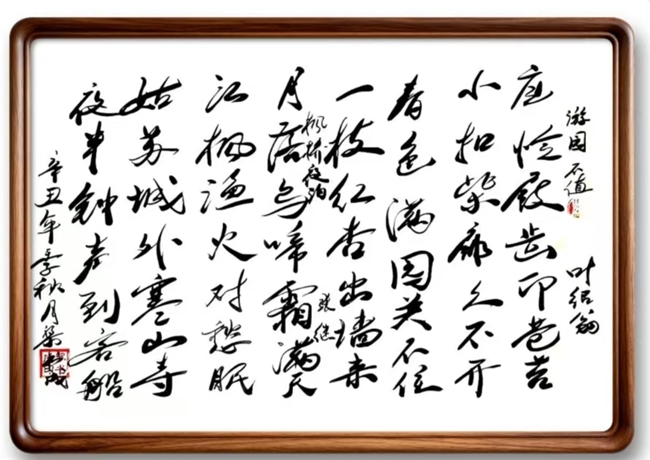 游园不值
叶绍翁
应怜屐齿印苍苔
小扣柴扉久不开
春色满园关不住
一枝红杏出墙来
枫桥夜泊
张继
月落乌啼霜满天
江枫渔火对愁眠
姑苏城外寒山寺
夜半钟声到客船
辛丑年季秋月